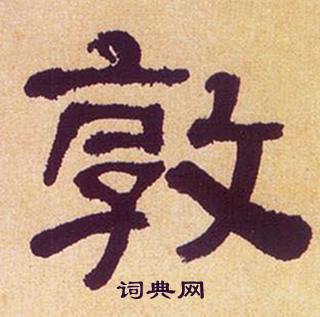 敦
词典网